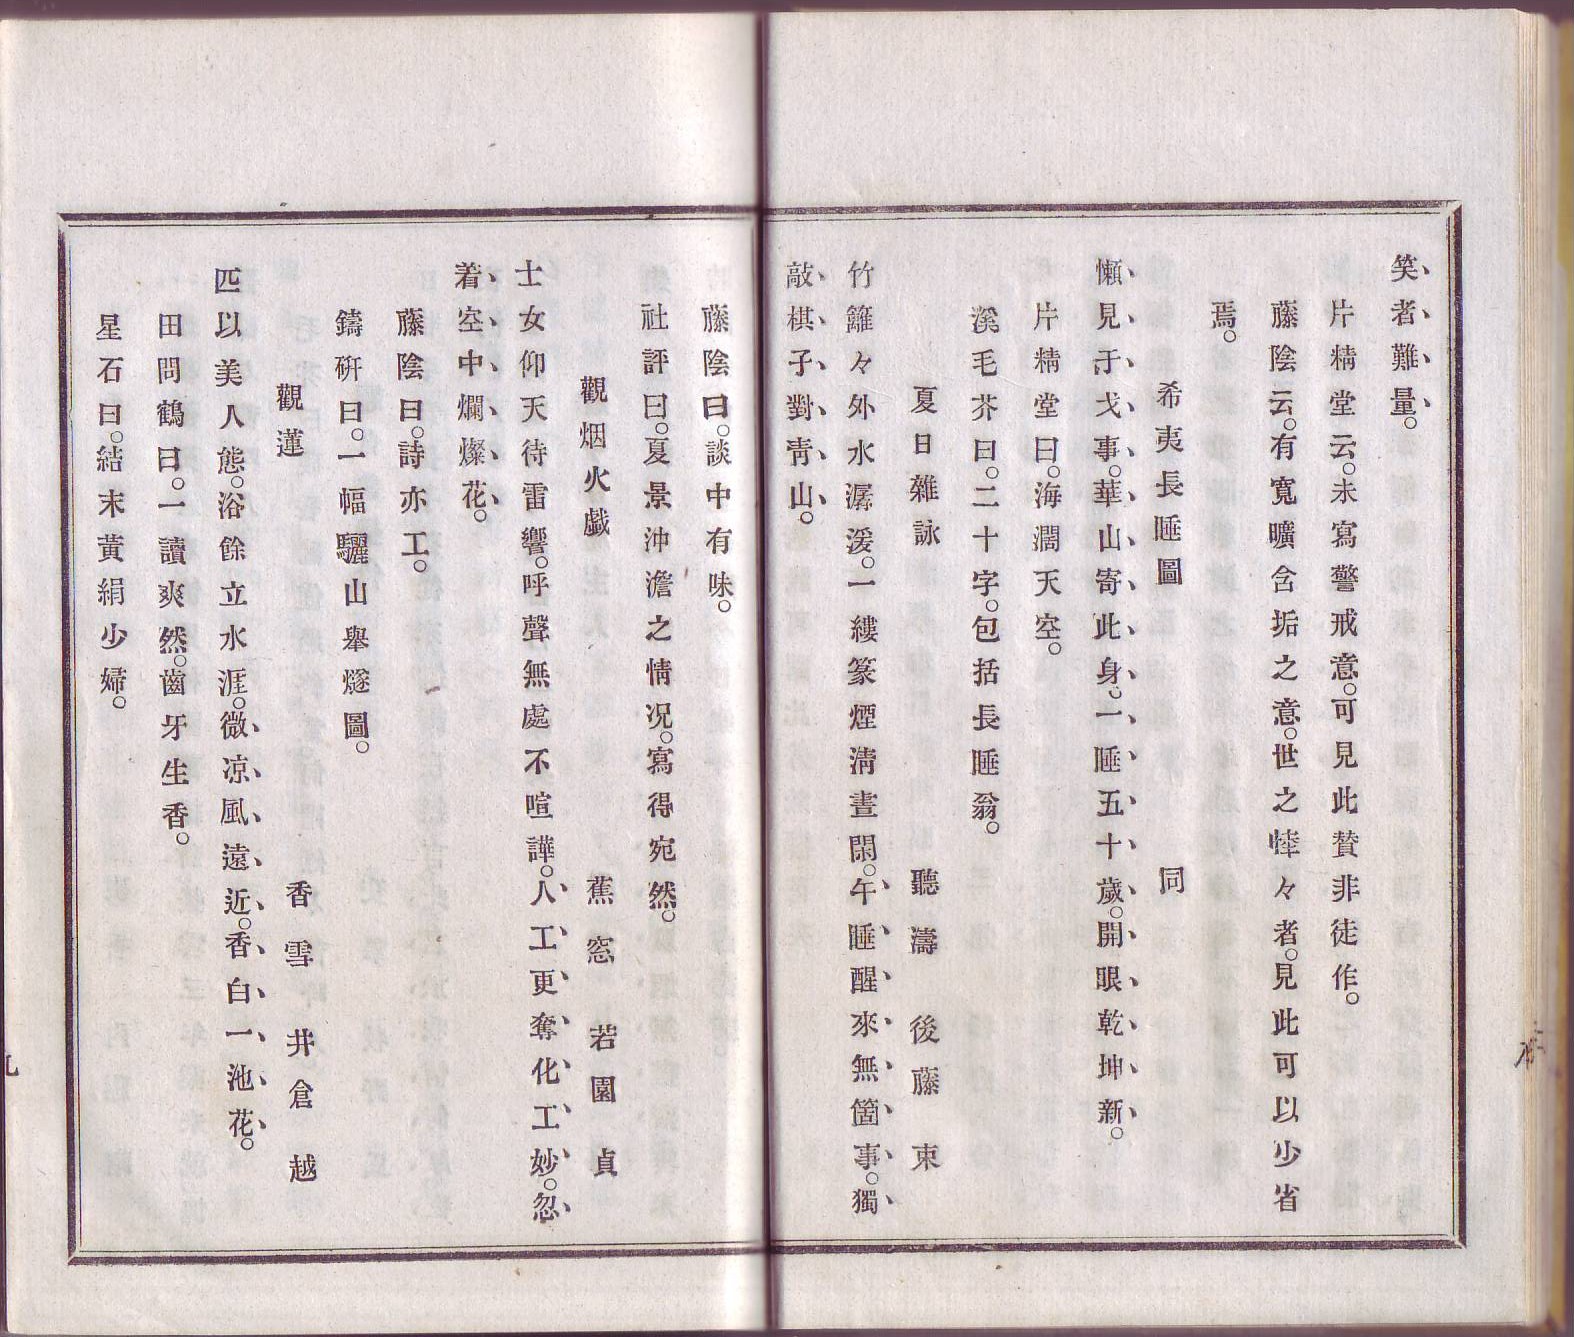 笑者難量。
片精堂云。未寫警戒意。可見此賛非徒作。
藤陰云。有寬曠含垢之意。世之悻々者。見此可以少省
焉。
希夷長睡圖 同
懶見于戈事。華山寄此身。一睡五十歲。開眼乾坤新。
片精堂曰。海濶天空。
溪毛芥曰。二十字。包括長睡翁。
夏日雜詠 聽濤 後藤東
竹籬々外水潺湲。一縷篆煙淸晝閑。午睡醒來無箇事。獨
敲棋子對靑山。
藤陰曰。談中有味。
社評曰。夏景沖澹之情况。寫得宛然。
觀烟火戯 蕉窓 若園貞
士女仰天待雷響。呼聲無處不喧譁。人工更奪化工妙。忽
着空中爛燦花。
藤陰曰。詩亦工。
鑄硏曰。一幅驪山舉燧圖。
觀蓮 香雪 井倉越
匹以美人態。浴餘立水涯。微凉風遠近。香白一池花。
田問鶴曰。一讀爽然。齒牙生香。
星石曰。結末黃絹少婦。